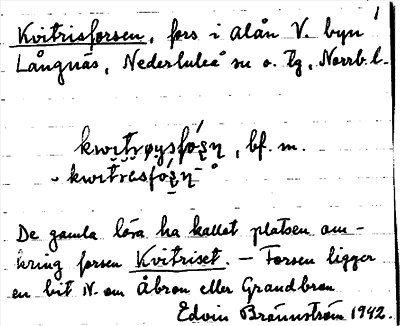 1
Kvitrisforsen, fors i Alån V. byn
Långnäs, Nederluleå sn o. tg, Norrb. l.
kwıtrøysfó̱ṣn̥, bf. m.
kwıtrısfó̱ṣn̥
De gamla lära ha kallat platsen om-
kring forsen Kvitriset. – Forsen ligger
en bit N. om Åbron eller Grandbron
Edvin Brännström 1942.